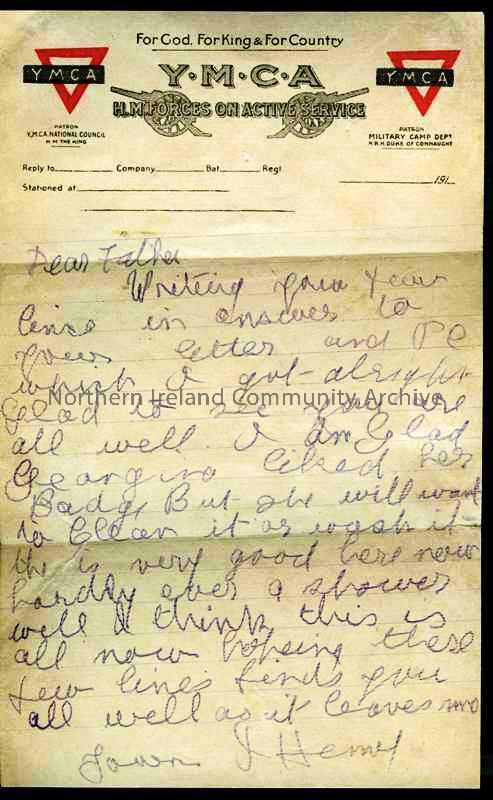 For God. For King & For Country
Y·M·C·A
H.M. FORCES ON ACTIVE SERVICE
YMCA
YMCA
PATRON
Y.M.C.A. NATIONAL COUNCIL
H.M. THE KING
PATRON
MILITARY CAMP DEPT
H.R.H. DUKE OF CONNAUGHT
Reply to Company Bat. Regt.
Stationed at 191
Dear Father
Writing you few
lines in answer to
your letter and PC
which I got alright
Glad to see you are
all well I am Glad
Georgina liked her
Badge But she will want
to Clean it or wash it
the is very good here now
hardly ever a shower
well I think this is
all now hopeing these
few lines finds you
all well as it leaves me
Yours J Henry
Northern Ireland Community Archive